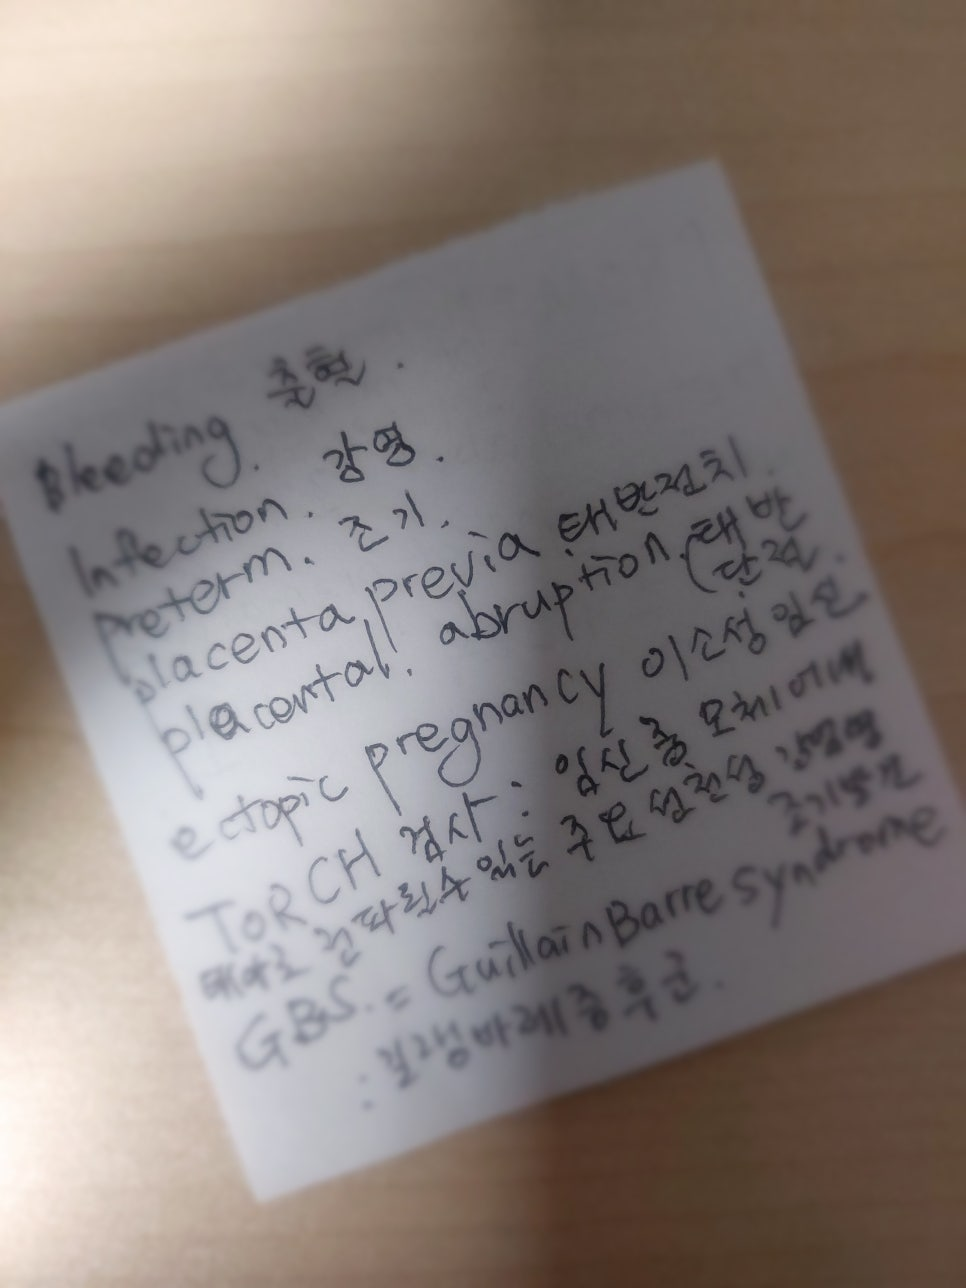 Bleeding. 출혈.
Infection. 감염.
preterm. 조기.
placenta previa 태반전치.
placental. abruption. (태반
단절.
ectopic pregnancy 이소성 임신
ToRCH 검사 : 임신 중 모체에서
태아로 전파될수 있는 주요 선천성 감염병
조기발견
GBS. = Guillain Barre syndrome
: 길랭바레증후군.